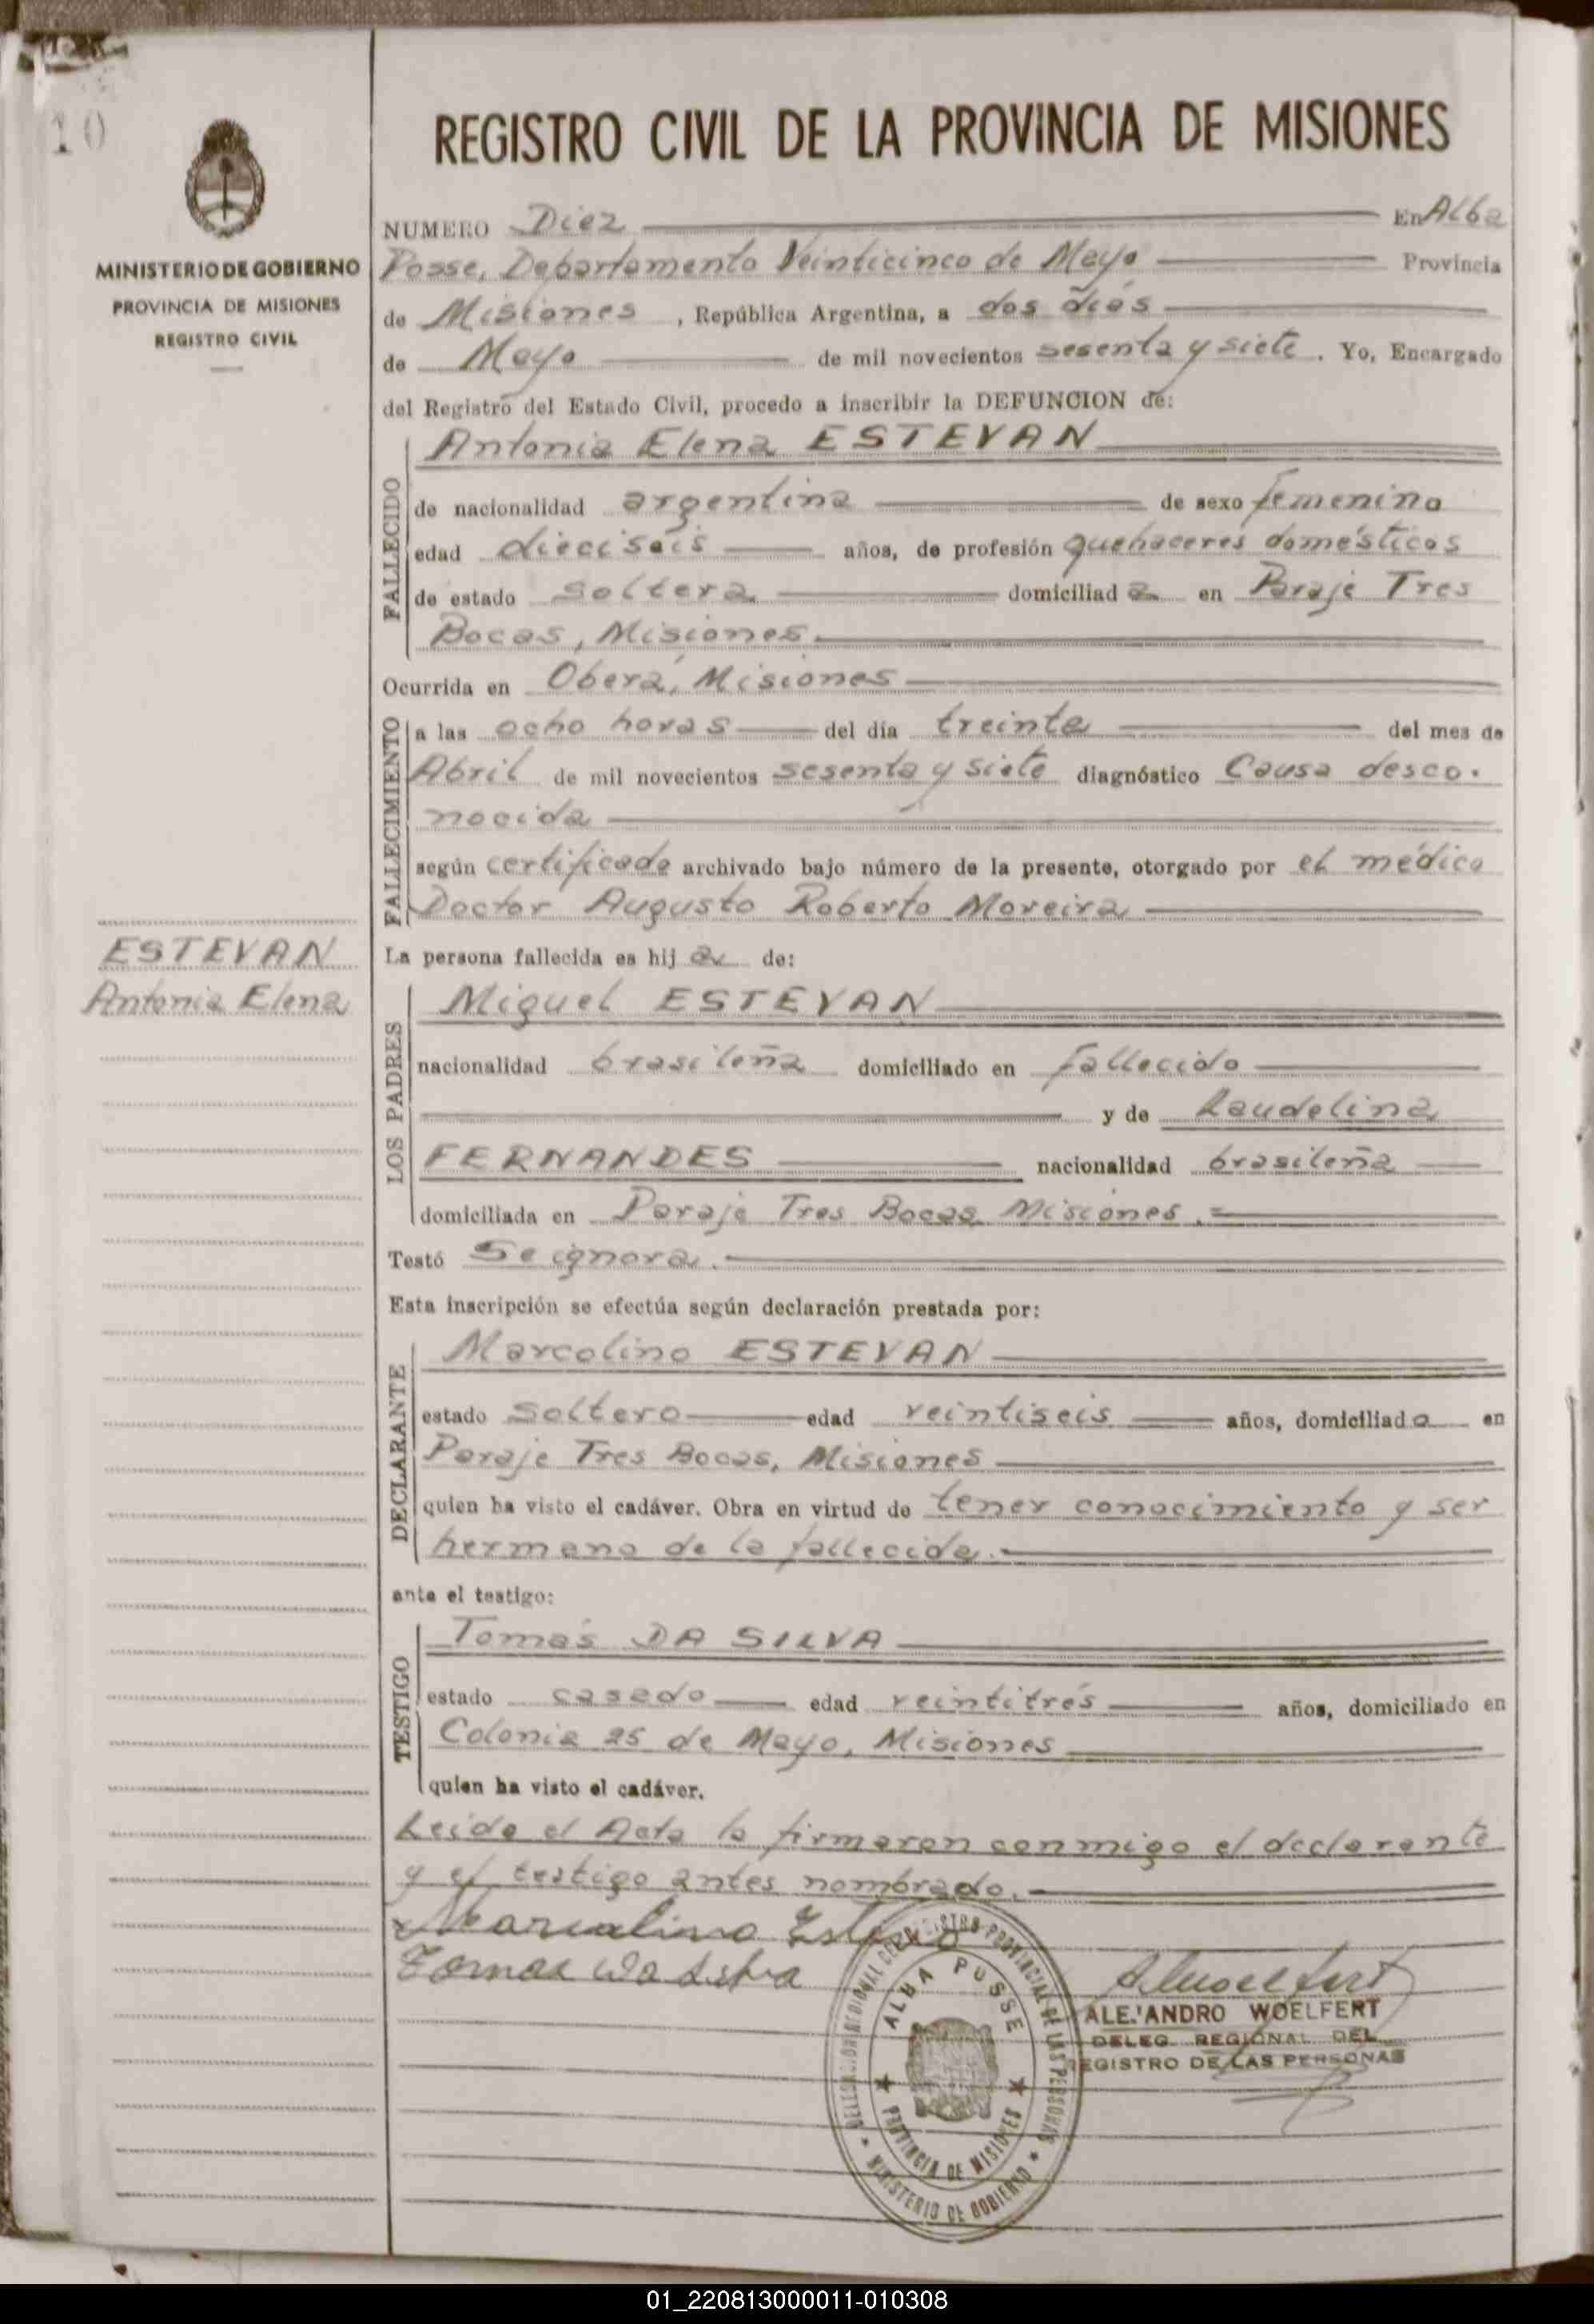 10
MINISTERIO DE GOBIERNO
PROVINCIA DE MISIONES
REGISTRO CIVIL
ESTEVAN
Antonia Elena
REGISTRO CIVIL DE LA PROVINCIA DE MISIONES
NUMERO Diez En Alba
Posse, Departamento Veinticinco de Mayo Provincia
de Misiones, República Argentina, a dos días
de Mayo de mil novecientos sesenta y siete. Yo, Encargado
del Registro del Estado Civil, procedo a inscribir la DEFUNCION de:
FALLECIDO
Antonia Elena ESTEVAN
de nacionalidad argentina de sexo femenino
edad dieciseis años, de profesión quehaceres domésticos
de estado soltera domiciliada en Paraje Tres
Bocas, Misiones.
Ocurrida en Oberá, Misiones
FALLECIMIENTO
a las ocho horas del día treinta del mes de
Abril de mil novecientos sesenta y siete diagnóstico Causa desco-
nocida
según certificado archivado bajo número de la presente, otorgado por el médico
Doctor Augusto Roberto Moreira
La persona fallecida es hija de:
LOS PADRES
Miguel ESTEVAN
nacionalidad brasileña domiciliado en fallecido
y de Laudelina
FERNANDES nacionalidad brasileña
domiciliada en Paraje Tres Bocas Misiones.=
Testó Se ignora.
Esta inscripción se efectúa según declaración prestada por:
DECLARANTE
Marcolino ESTEVAN
estado Soltero edad veintiseis años, domiciliado en
Paraje Tres Bocas, Misiones
quien ha visto el cadáver. Obra en virtud de tener conocimiento y ser
hermano de la fallecida.
ante el testigo:
TESTIGO
Tomás DA SILVA
estado casado edad veintitrés años, domiciliado en
Colonia 25 de Mayo, Misiones
quien ha visto el cadáver.
Leida el Acta la firmaron conmigo el declarante
y el testigo antes nombrado.
Tomas Da Silva
ALBA POSSE
PROVINCIA DE MISIONES
MINISTERIO DE GOBIERNO
ALEJANDRO WOELFERT
DELEG. REGIONAL DEL
REGISTRO DE LAS PERSONAS
01_220813000011-010308